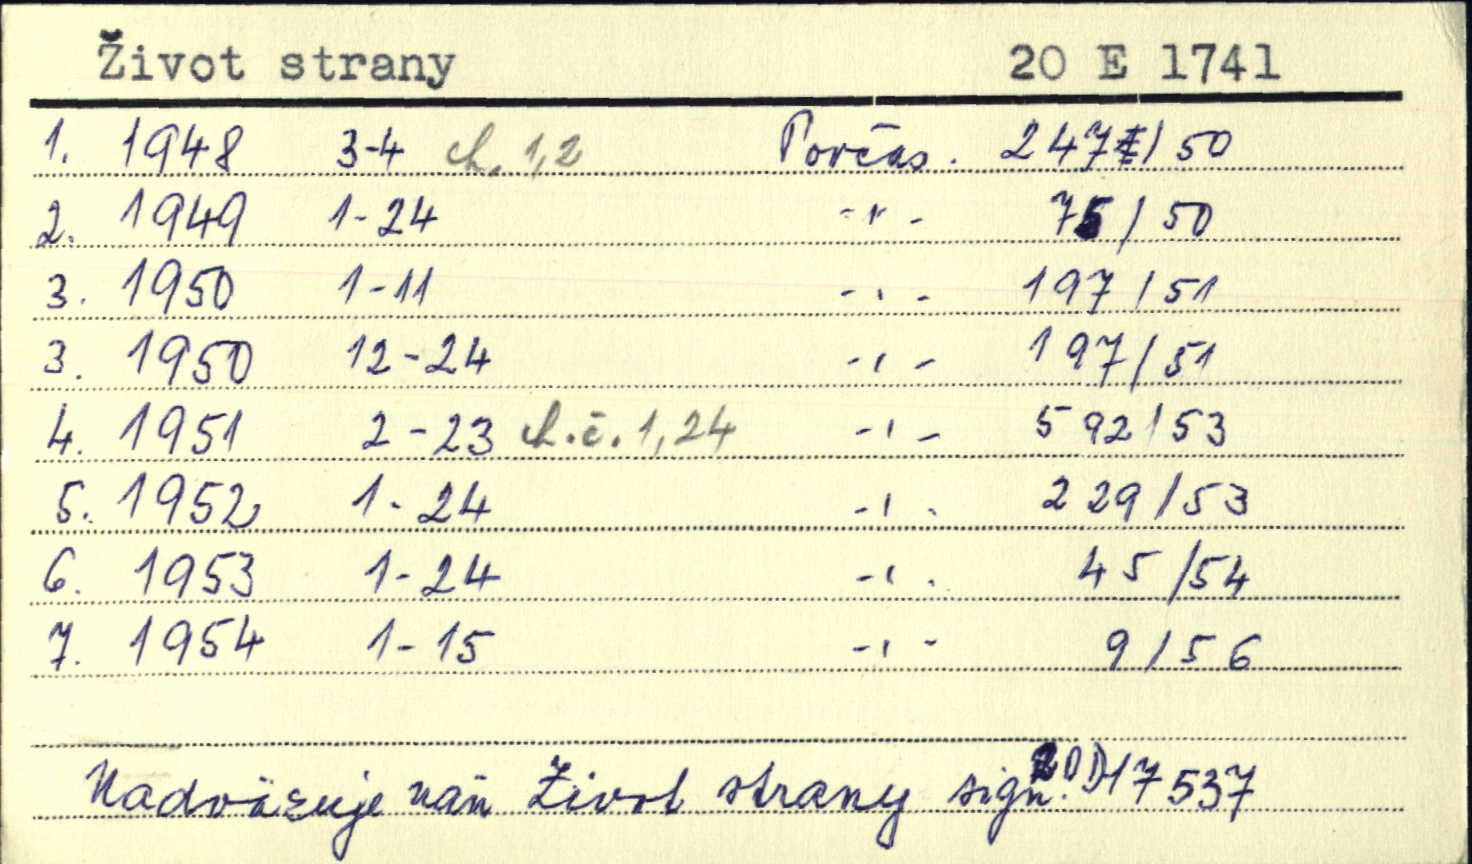 Život strany 20 E 1741
1. 1948 3-4 ch. 1,2 Povčas. 247/50
2. 1949 1-24 -"- 75/50
3. 1950 1-11 -"- 197/51
3. 1950 12-24 -"- 197/51
4. 1951 2-23 ch.č. 1,24 -"- 592/53
5. 1952 1-24 -"- 229/53
6. 1953 1-24 -"- 45/54
7. 1954 1-15 -"- 9/56
Nadväzuje naň Život strany sign. 20 D 17 537